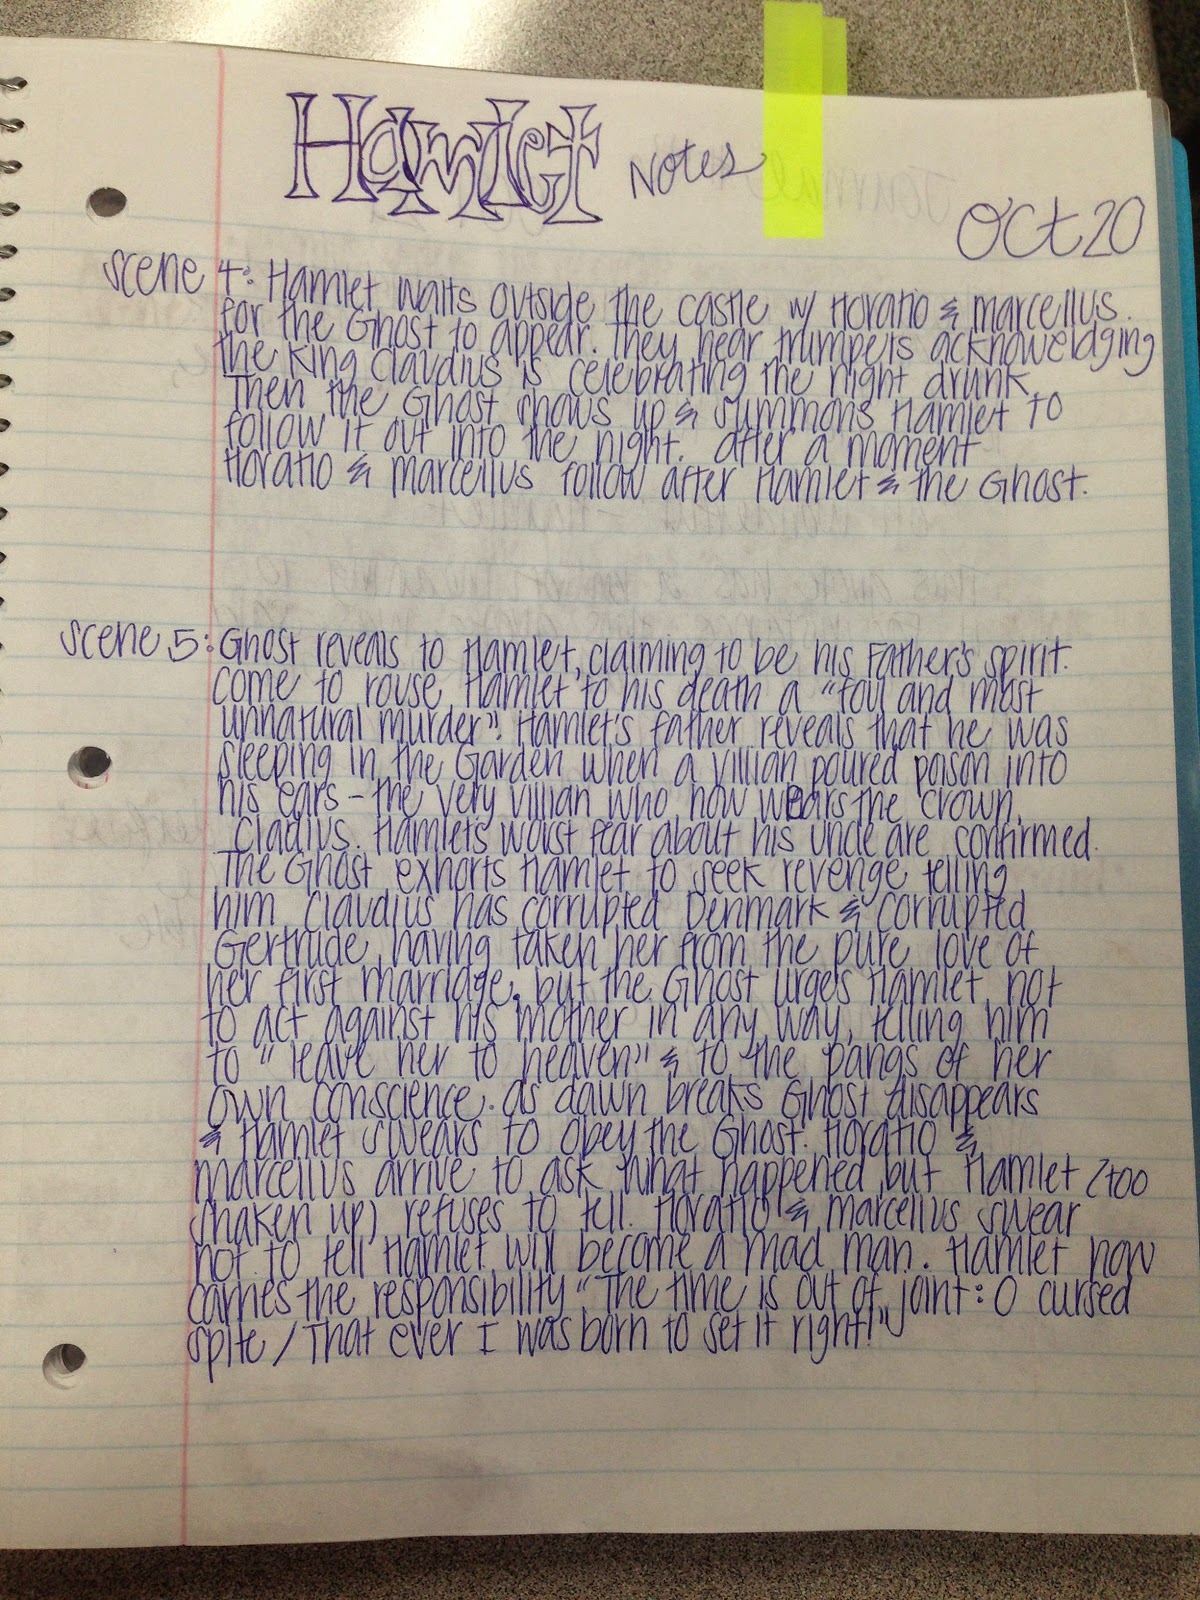 Hamlet Notes
Oct 20
Scene 4: Hamlet waits outside the castle w/ Horatio & marcellus.
for the Ghost to appear. They hear trumpets acknoweldging
the King Claudius is celebrating the night drunk.
Then the Ghost shows up & summons Hamlet to
follow it out into the night. after a moment
Horatio & marcellus follow after Hamlet & the Ghost.
Scene 5: Ghost reveals to Hamlet, claiming to be his Father's spirit.
come to rouse Hamlet to his death a "foul and most
unnatural murder". Hamlet's father reveals that he was
sleeping in the Garden when a villian poured poison into
his ears - the very villian who now wears the crown,
Cladius. Hamlets worst fear about his uncle are confirmed.
The Ghost exhorts Hamlet to seek revenge telling
him Claudius has corrupted Denmark & corrupted
Gertrude, having taken her from the pure love of
her first marriage, but the Ghost urges Hamlet not
to act against his mother in any way, telling him
to "leave her to heaven" & to the pangs of her
own conscience. as dawn breaks Ghost disappears
& Hamlet swears to obey the Ghost. Horatio &
marcellus arrive to ask what happened but Hamlet (too
shaken up) refuses to tell. Horatio & marcellus swear
not to tell Hamlet will become a mad man. Hamlet now
carries the responsibility "The time is out of joint: O cursed
spite / That ever I was born to set it right!"